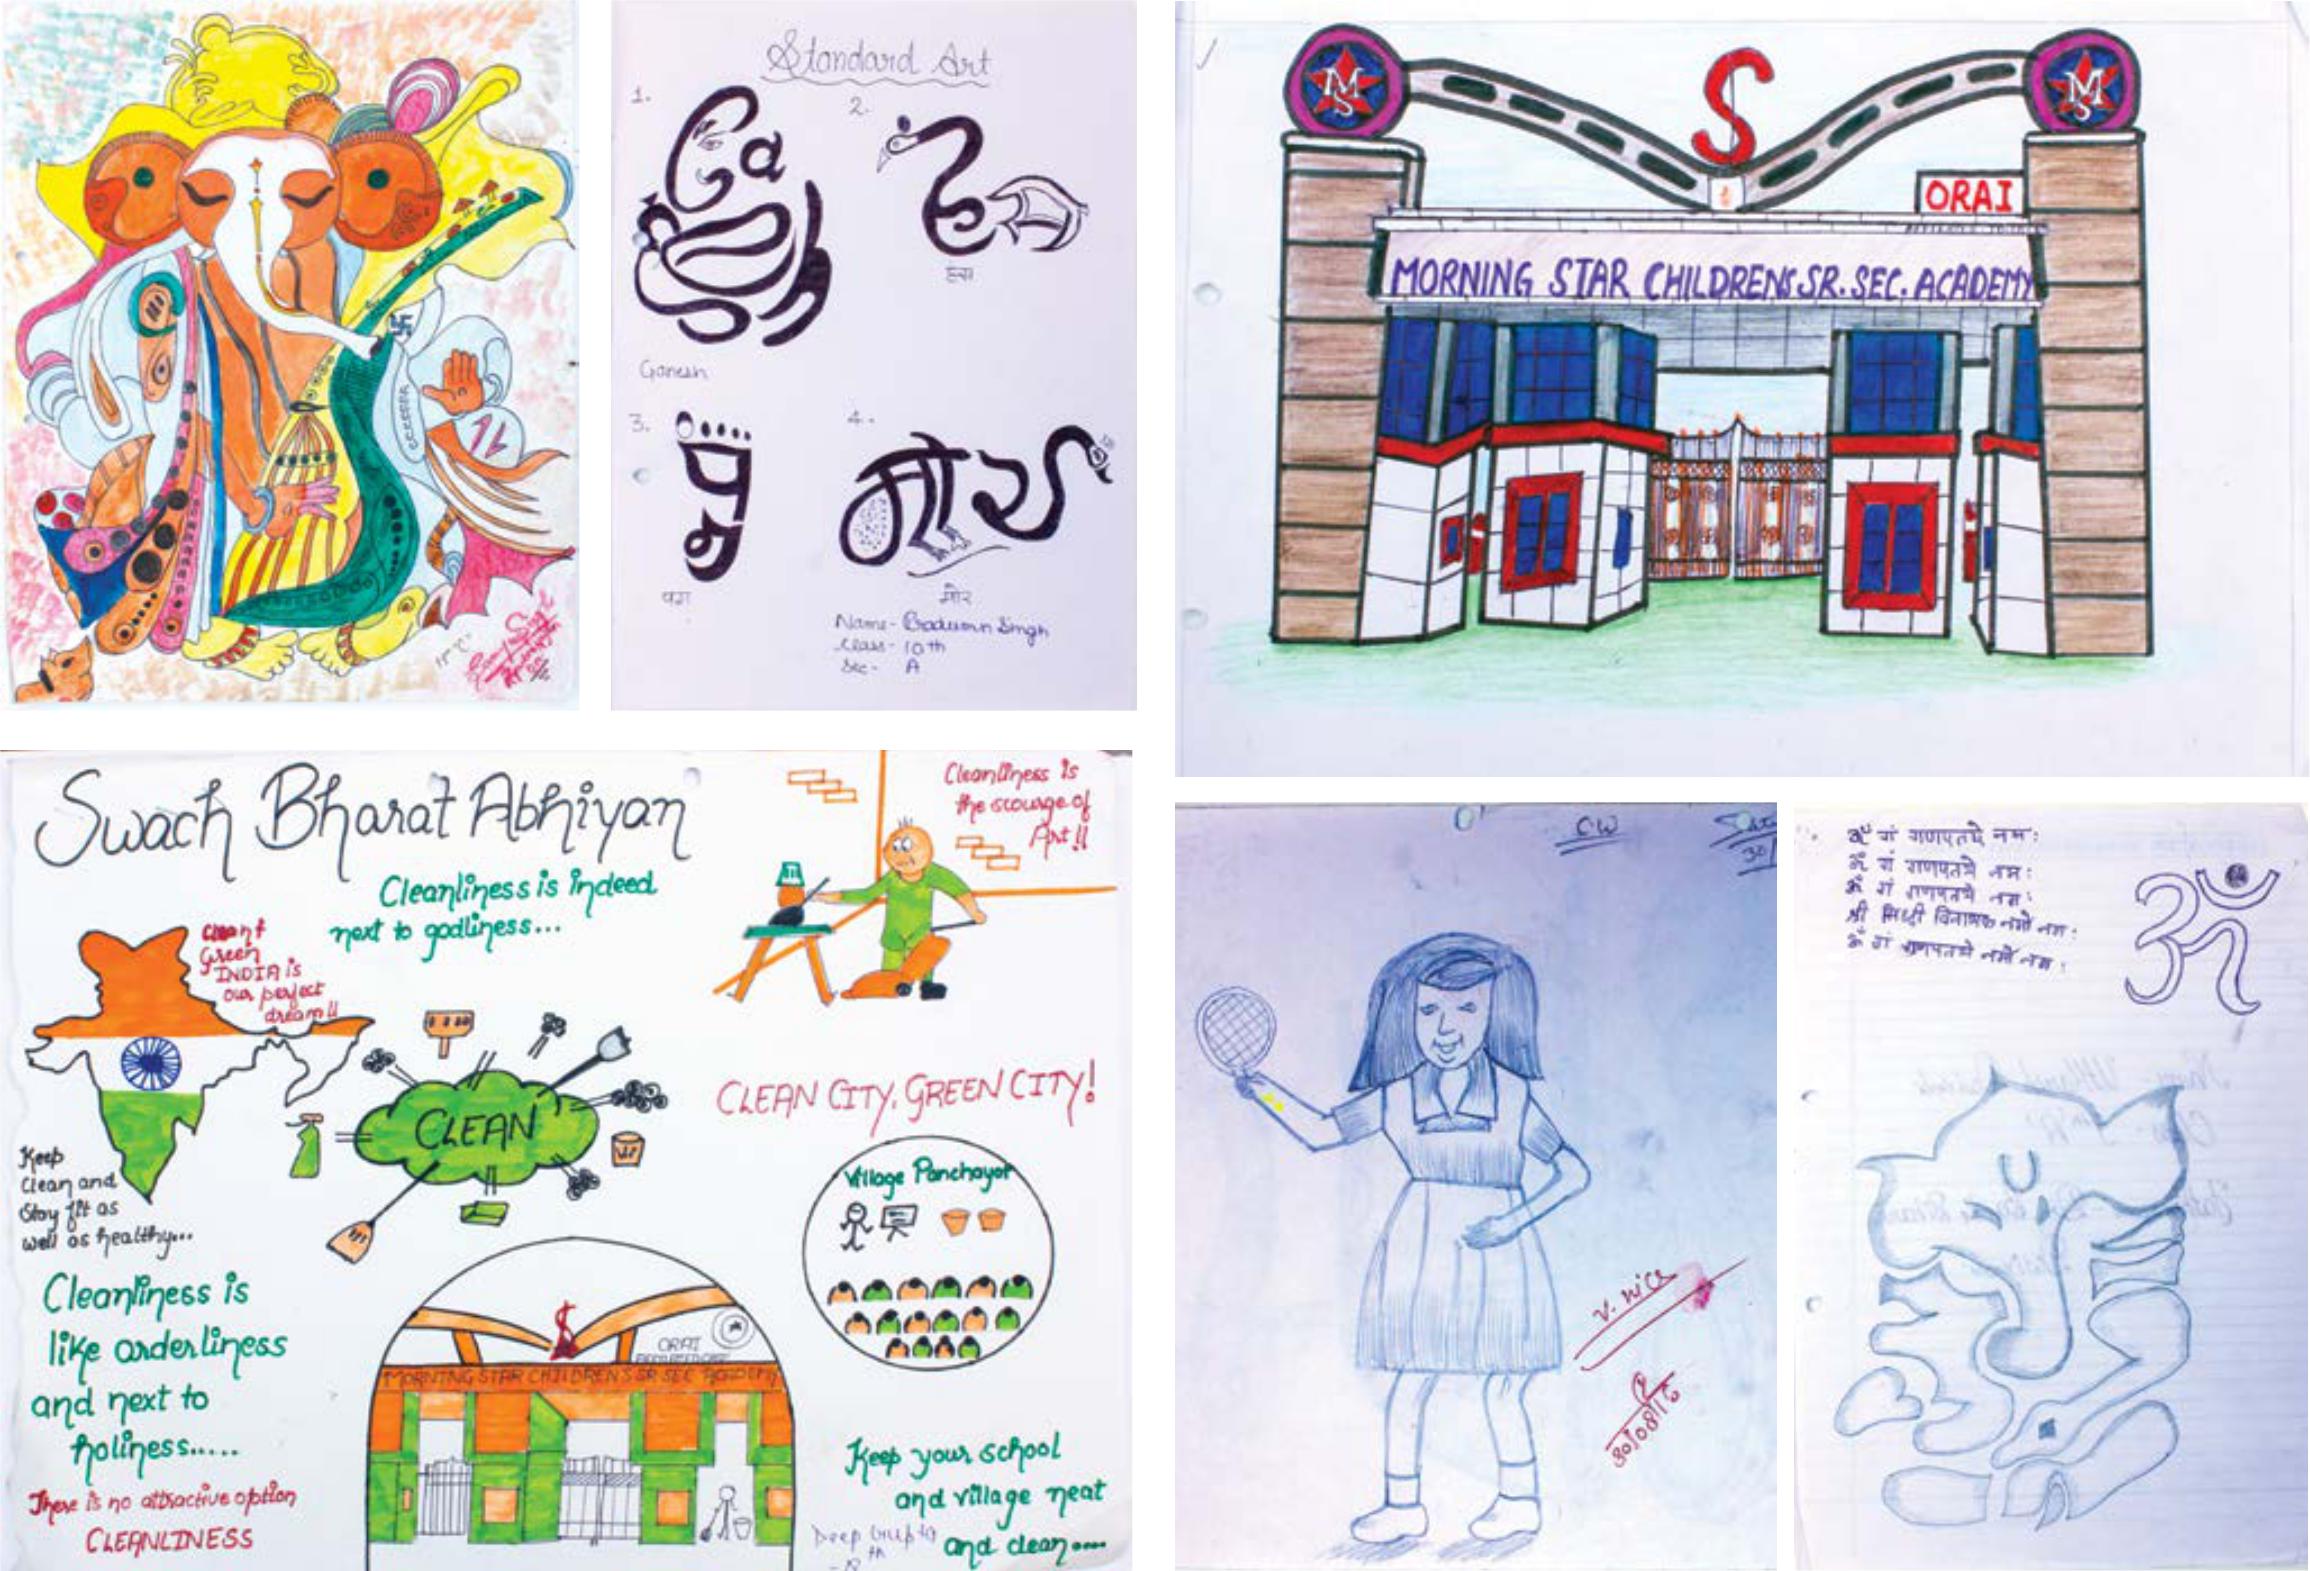 Standard Art
1.
2.
Ga
ह
हंस
Ganesh
3.
4.
पग
मोर
Name- Pradumn Singh
Class- 10th
Sec- A
S
MS
MS
ORAI
MORNING STAR CHILDRENS SR. SEC. ACADEMY
Swach Bharat Abhiyan
Cleanliness is indeed
next to godliness...
Cleanliness is
the scourge of
Art!!
Clean &
Green
INDIA is
our perfect
dream!!
CLEAN
CLEAN CITY, GREEN CITY!
Keep
Clean and
Stay fit as
well as healthy...
Village Panchayat
Cleanliness is
like orderliness
and next to
holiness.....
There is no attractive option
CLEANLINESS
S
ORAI
MORNING STAR CHILDRENS SR SEC ACADEMY
Keep your school
and village neat
and clean....
Deep Gupta
C.W
v. nice
30/08/16
ॐ गं गणपतये नमः
ॐ गं गणपतये नमः
ॐ गं गणपतये नमः
श्री सिध्दी विनायक नमो नमः
ॐ गं गणपतये नमो नमः
ॐ